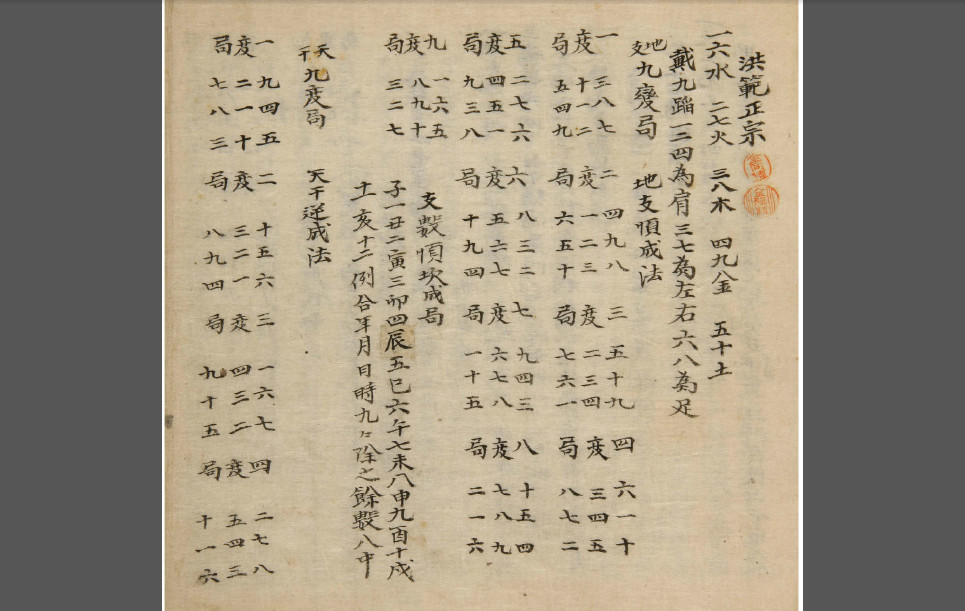 洪範正宗
一六水 二七火 三八木 四九金 五十土
戴九蹈一二四為肩三七為左右六八為足
地支九變局 地支順成法
一 三八七 二 四九八 三 五十九 四 六一十
變 十一二 變 一二三 變 二三四 變 三四五
局 五四九 局 六五十 局 七六一 局 八七二
五 二七六 六 八三二 七 九四三 八 十五四
變 四五一 變 五六七 變 六七八 變 七八九
局 九三八 局 十九四 局 一十五 局 二一六
九 一六五
變 八九十
局 三二七
支數順坎成局
子一丑二寅三卯四辰五巳六午七未八申九酉十戌
十一亥十二例合年月日時九々除之餘數入中
天干九變局 天干逆成法
一 九四五 二 十五六 三 一六七 四 二七八
變 二一十 變 三二一 變 四三二 變 五四三
局 七八三 局 八九四 局 九十五 局 十一六